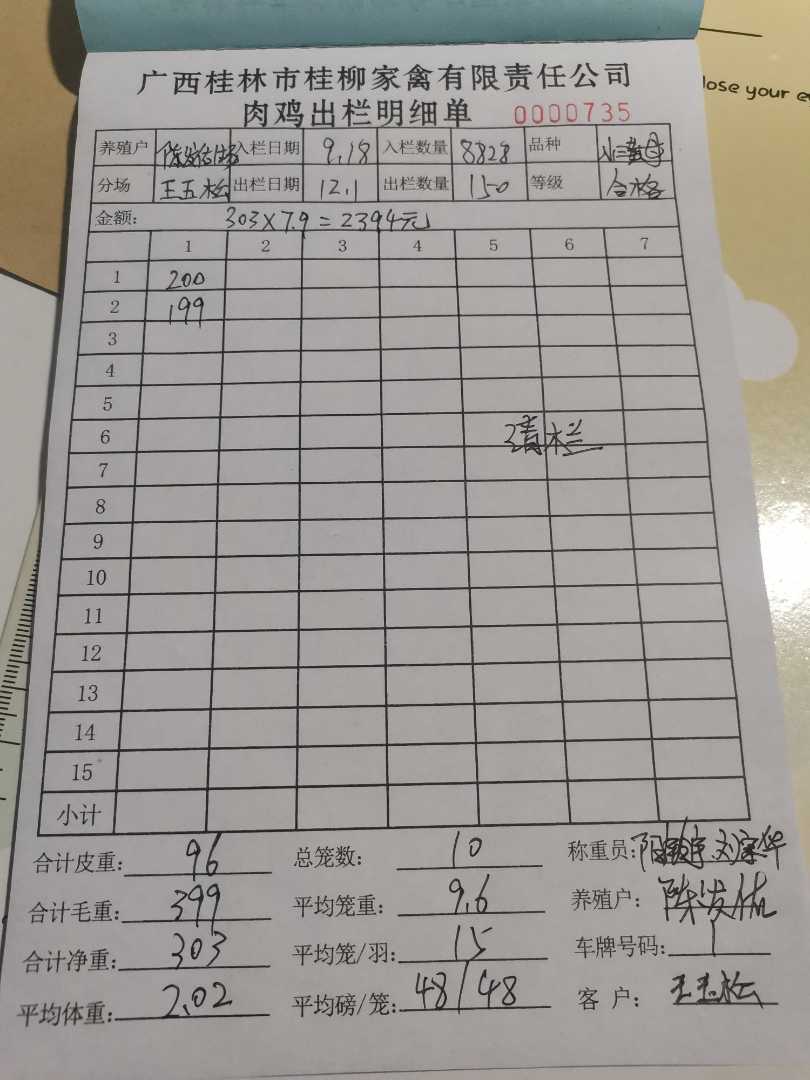 lose your
广西桂林市桂柳家禽有限责任公司
肉鸡出栏明细单 0000735
养殖户 入栏日期 9.18 入栏数量 8828 品种
分场 王五松 出栏日期 12.1 出栏数量 150 等级 合格
金额: 303×7.9=2394元
1 2 3 4 5 6 7
1 200
2 199
3
4
5
6 清栏
7
8
9
10
11
12
13
14
15
小计
合计皮重: 96 总笼数: 10 称重员:
合计毛重: 399 平均笼重: 9.6 养殖户: 陈发佑
合计净重: 303 平均笼/羽: 15 车牌号码: 1
平均体重: 2.02 平均磅/笼: 48/48 客 户: 王玉松